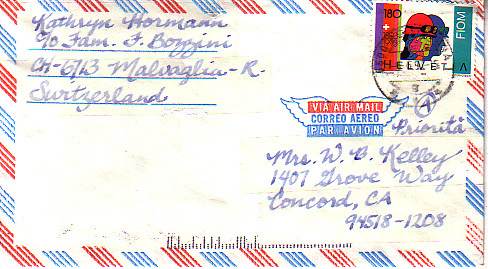 Kathryn Hormann
c/o Fam. F. Bozzini
CH-6713 Malvaglia-R.
Switzerland
180
FIOM
HELVETIA
VIA AIR MAIL
CORREO AEREO
PAR AVION
Priorità
A
Mrs. W. B. Kelley
1407 Grove Way
Concord, CA
94518-1208